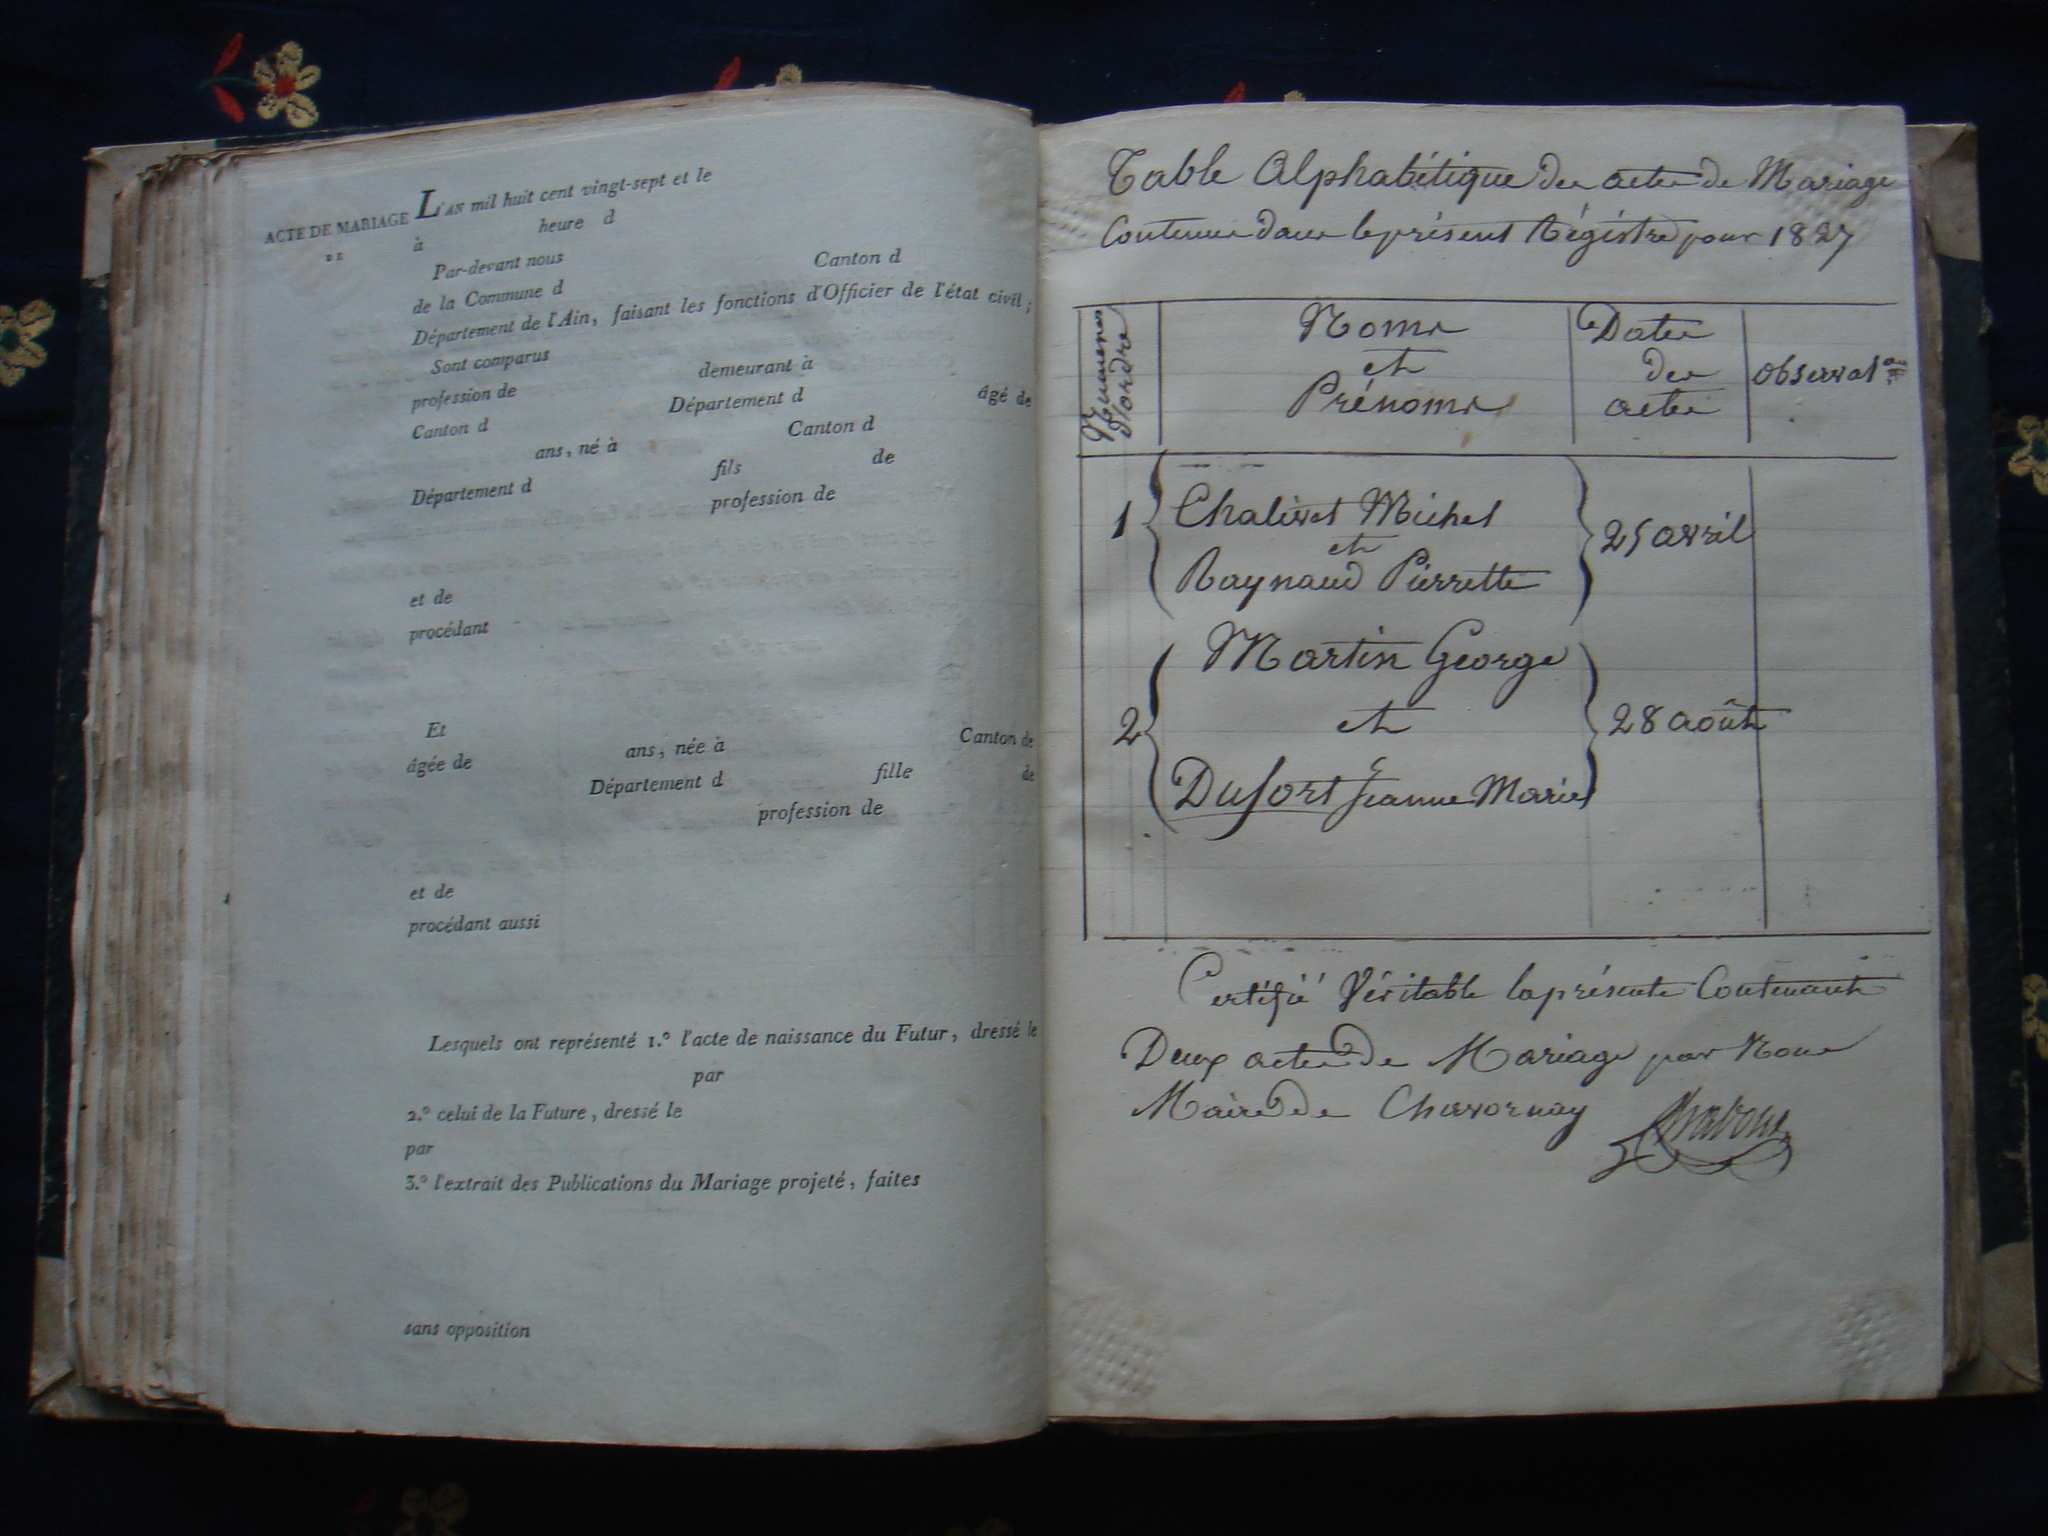 ACTE DE MARIAGE
DE
L'AN mil huit cent vingt-sept et le
à heure d
Par-devant nous
de la Commune d Canton d
Département de l'Ain, faisant les fonctions d'Officier de l'état civil;
Sont comparus
profession de demeurant à
Canton d Département d âgé de
ans, né à Canton d
Département d fils de
profession de
et de
procédant
Et
âgée de ans, née à Canton de
Département d fille de
profession de
et de
procédant aussi
Lesquels ont représenté 1.° l'acte de naissance du Futur, dressé le
par
2.° celui de la Future, dressé le
par
3.° l'extrait des Publications du Mariage projeté, faites
sans opposition
Table Alphabétique des actes de Mariage
Contenus dans le présent Régistre pour 1827
Numéros d'ordre
Noms et Prénoms
Dates des actes
Observat.ons
1 Chalivet Michel
et
Raynaud Pierrette
25 avril
2 Martin George
et
Dufort Jeanne Marie
28 août
Certifié Véritable la présente Contenant
Deux actes de Mariage par Nous
Maire de Chavornay